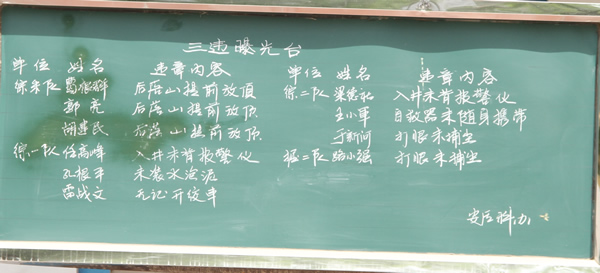 三违曝光台
单位 姓名 违章内容
综采队 葛银群 后落山提前放顶
郭亮 后落山提前放顶
胡建民 后落山提前放顶
综一队 任高峰 入井未背报警仪
孔根平 未装水炮泥
雷战文 无证开绞车
单位 姓名 违章内容
综二队 入井未背报警仪
王小军 自救器未随身携带
于新问 打眼未捕尘
掘二队 小强 打眼未捕尘
安后科办